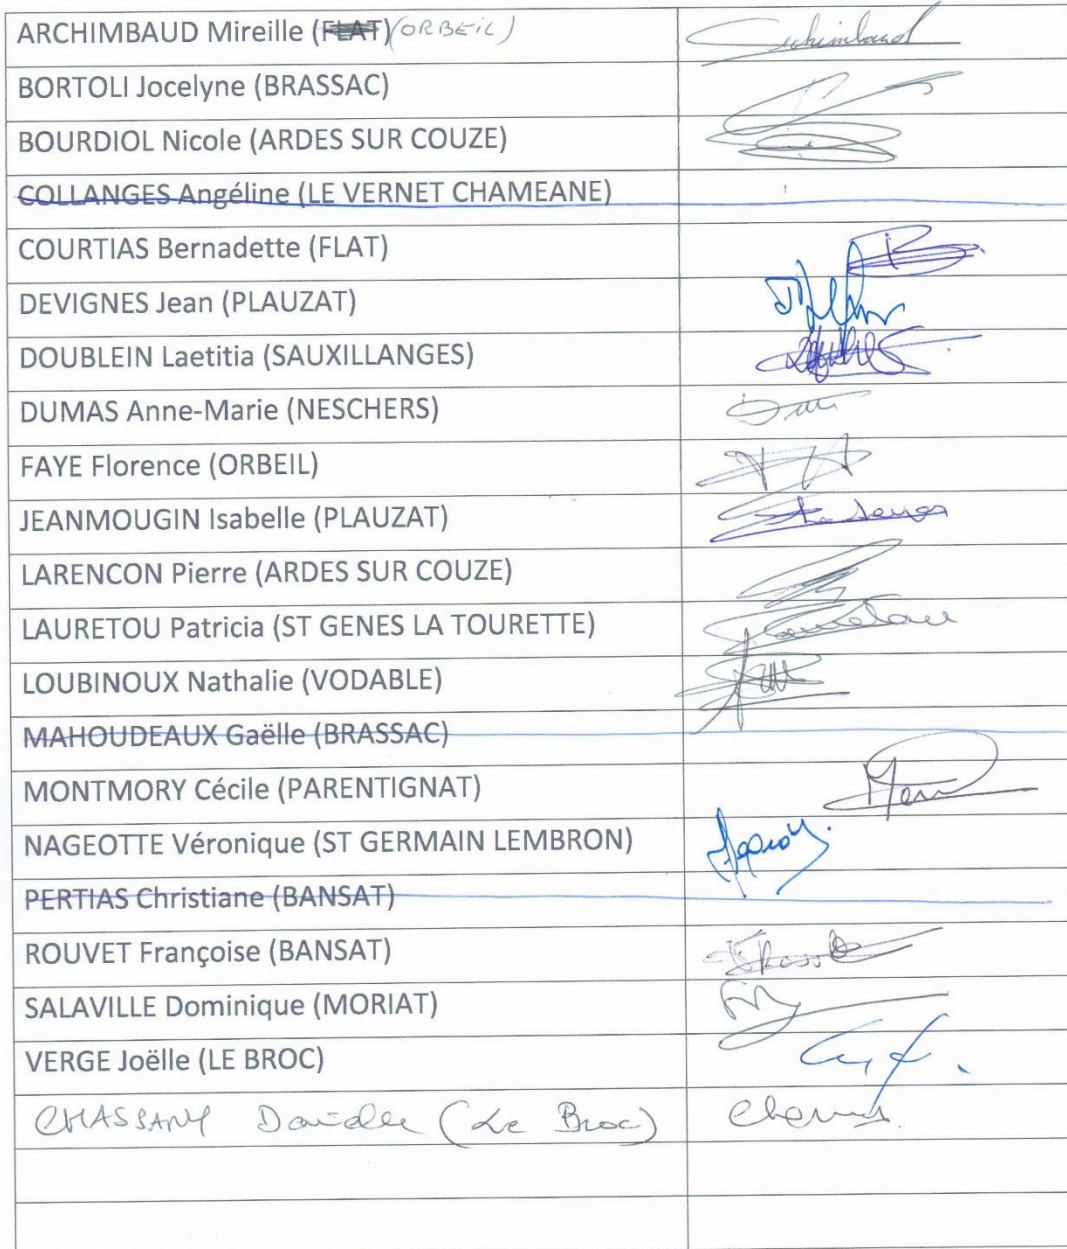 ARCHIMBAUD Mireille (FLAT) (ORBEIL)
BORTOLI Jocelyne (BRASSAC)
BOURDIOL Nicole (ARDES SUR COUZE)
COLLANGES Angéline (LE VERNET CHAMEANE)
COURTIAS Bernadette (FLAT)
DEVIGNES Jean (PLAUZAT)
DOUBLEIN Laetitia (SAUXILLANGES)
DUMAS Anne-Marie (NESCHERS)
FAYE Florence (ORBEIL)
JEANMOUGIN Isabelle (PLAUZAT)
LARENCON Pierre (ARDES SUR COUZE)
LAURETOU Patricia (ST GENES LA TOURETTE)
LOUBINOUX Nathalie (VODABLE)
MAHOUDEAUX Gaëlle (BRASSAC)
MONTMORY Cécile (PARENTIGNAT)
NAGEOTTE Véronique (ST GERMAIN LEMBRON)
PERTIAS Christiane (BANSAT)
ROUVET Françoise (BANSAT)
SALAVILLE Dominique (MORIAT)
VERGE Joëlle (LE BROC)
CHASSANY Danielle (Le Broc)